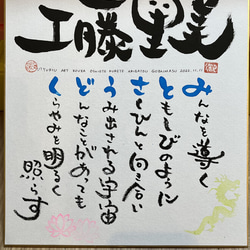 工藤里美
みんなを導く
ともしびのように
さくひんと向き合い
うみ出される宇宙
どんなことがあっても
くらやみを明るく
照らす